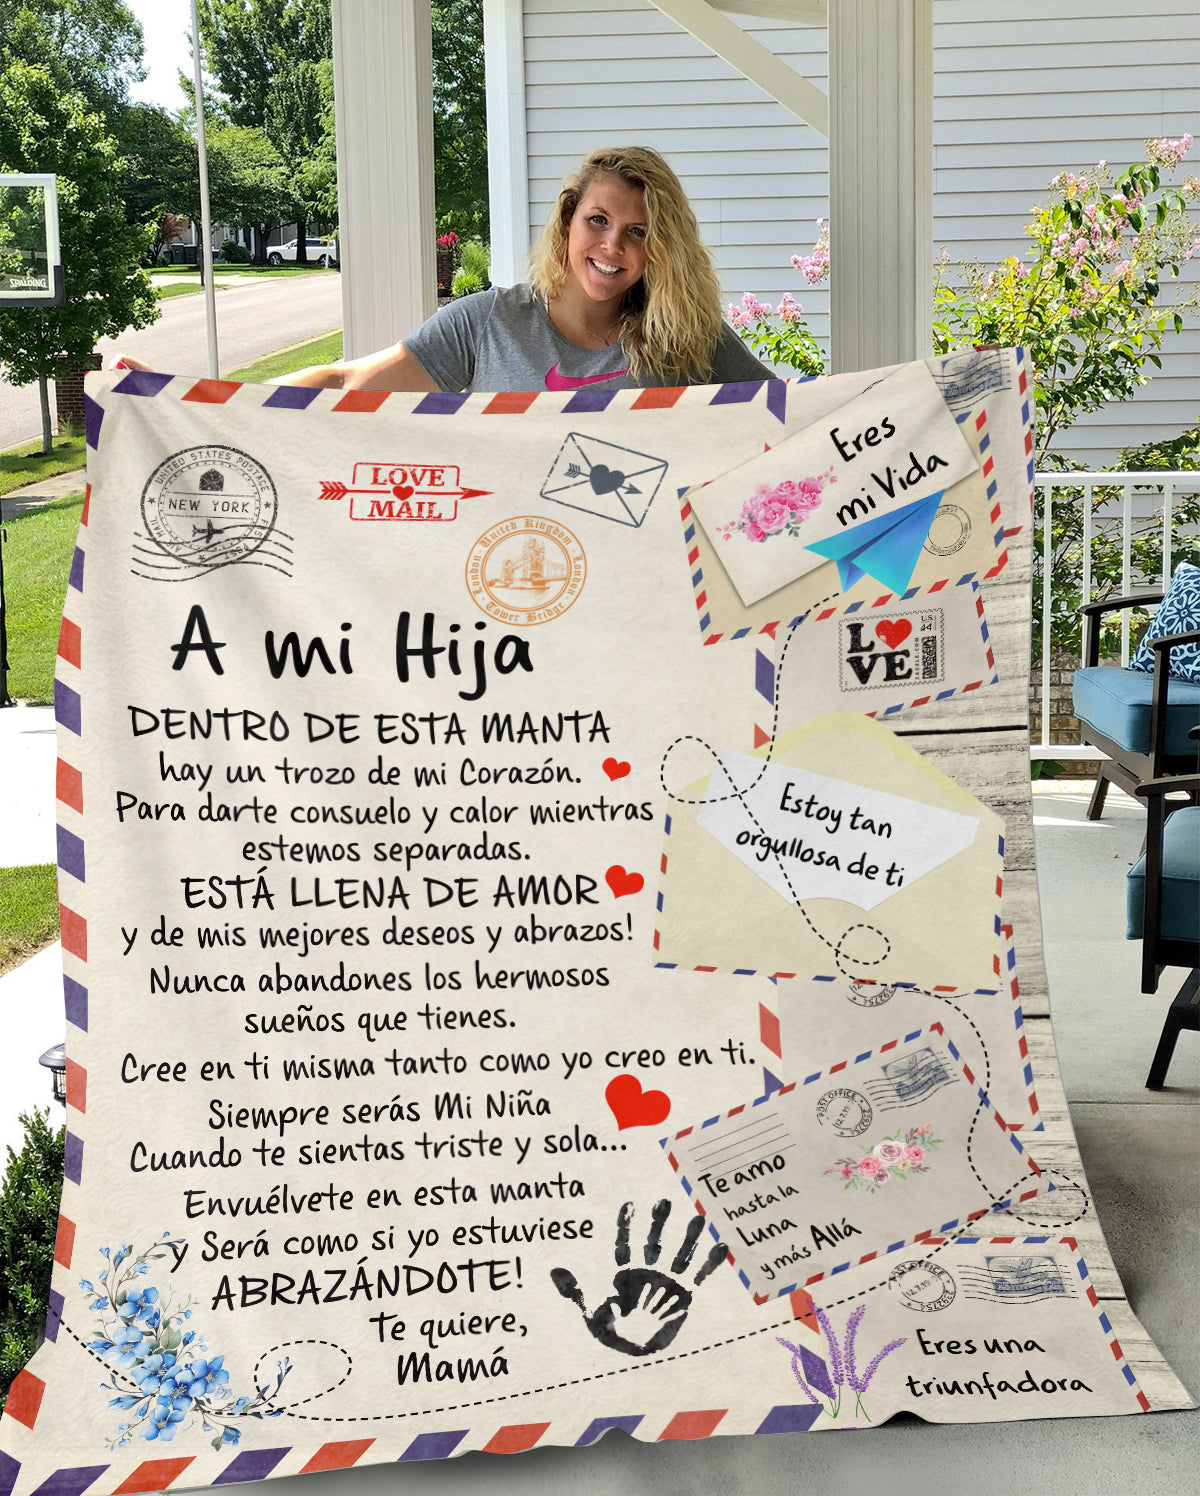 SPALDING
UNITED STATES POSTAGE
NEW YORK
AIR MAIL
LOVE
MAIL
United Kingdom
London
London
Tower Bridge
Eres
mi Vida
A mi Hija
LOVE
U.S.
44
DENTRO DE ESTA MANTA
hay un trozo de mi Corazón.
Para darte consuelo y calor mientras
estemos separadas.
ESTÁ LLENA DE AMOR
y de mis mejores deseos y abrazos!
Nunca abandones los hermosos
sueños que tienes.
Cree en ti misma tanto como yo creo en ti.
Siempre serás Mi Niña
Cuando te sientas triste y sola...
Envuélvete en esta manta
y Será como si yo estuviese
ABRAZÁNDOTE!
Te quiere,
Mamá
Estoy tan
orgullosa de ti
POST OFFICE
12.7.19
292754
Te amo
hasta la
Luna
y más Allá
POST OFFICE
12.7.19
292754
Eres una
triunfadora